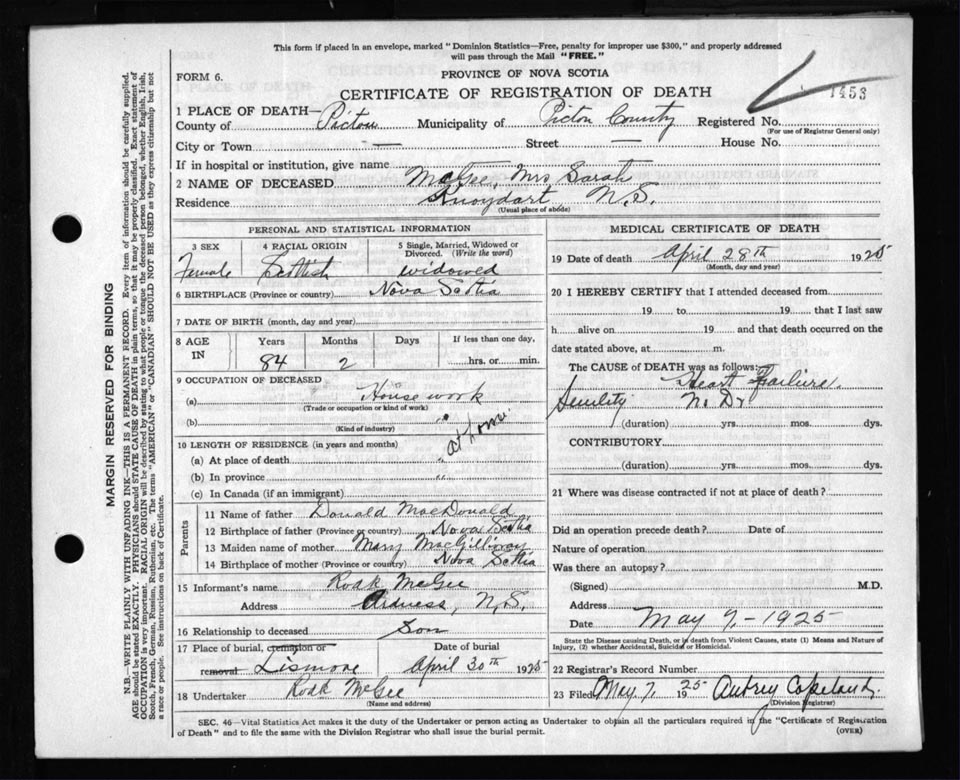 This form if placed in an envelope, marked "Dominion Statistics—Free, penalty for improper use $300," and properly addressed
will pass through the Mail "FREE."
FORM 6.
PROVINCE OF NOVA SCOTIA
CERTIFICATE OF REGISTRATION OF DEATH
1453
1 PLACE OF DEATH—
County of Pictou Municipality of Pictou County Registered No.
(For use of Registrar General only)
City or Town — Street — House No.
If in hospital or institution, give name
2 NAME OF DECEASED McGee, Mrs Sarah
Residence Knoydart N.S.
(Usual place of abode)
PERSONAL AND STATISTICAL INFORMATION
3 SEX 4 RACIAL ORIGIN 5 Single, Married, Widowed or Divorced. (Write the word)
Female Scottish widowed
6 BIRTHPLACE (Province or country) Nova Scotia
7 DATE OF BIRTH (month, day and year)
8 AGE IN Years Months Days If less than one day,
84 2 hrs. or min.
9 OCCUPATION OF DECEASED
(a) House work
(Trade or occupation or kind of work)
(b) "
(Kind of industry)
at home
10 LENGTH OF RESIDENCE (in years and months)
(a) At place of death "
(b) In province "
(c) In Canada (if an immigrant)
Parents
11 Name of father Donald MacDonald
12 Birthplace of father (Province or country) Nova Scotia
13 Maiden name of mother Mary MacGillivray
14 Birthplace of mother (Province or country) Nova Scotia
15 Informant's name Roak McGee
Address N.S.
16 Relationship to deceased Son
17 Place of burial, cremation or removal Date of burial
Lismore April 30th 1925
18 Undertaker Roak McGee
(Name and address)
MEDICAL CERTIFICATE OF DEATH
19 Date of death April 28th 1925
(Month, day and year)
20 I HEREBY CERTIFY that I attended deceased from
19 to 19 that I last saw
h alive on 19 and that death occurred on the
date stated above, at m.
The CAUSE OF DEATH was as follows:
Heart Failure
Senility No Dr
(duration) yrs. mos. dys.
CONTRIBUTORY
(duration) yrs. mos. dys.
21 Where was disease contracted if not at place of death?
Did an operation precede death? Date of
Nature of operation
Was there an autopsy?
(Signed) M.D.
Address
Date May 7, - 1925
State the Disease causing Death, or in death from Violent Causes, state (1) Means and Nature of
Injury, (2) whether Accidental, Suicidal or Homicidal.
22 Registrar's Record Number
23 Filed May 7, 1925 Aubrey Copeland.
(Division Registrar)
SEC. 46—Vital Statistics Act makes it the duty of the Undertaker or person acting as Undertaker to obtain all the particulars required in the "Certificate of Registration
of Death" and to file the same with the Division Registrar who shall issue the burial permit.
(OVER)
MARGIN RESERVED FOR BINDING
N.B.—WRITE PLAINLY WITH UNFADING INK—THIS IS A PERMANENT RECORD. Every item of information should be carefully supplied.
AGE should be stated EXACTLY. PHYSICIANS should STATE CAUSE OF DEATH in plain terms, so that it may be properly classified. Exact statement of
OCCUPATION is very important. RACIAL ORIGIN will be described by stating to what people or tongue the deceased person belonged, whether English, Irish,
Scotch, French, German, Russian, Ruthenian, etc. The terms "AMERICAN" or "CANADIAN" SHOULD NOT BE USED as they express citizenship but not
a race or people. See instructions on back of Certificate.